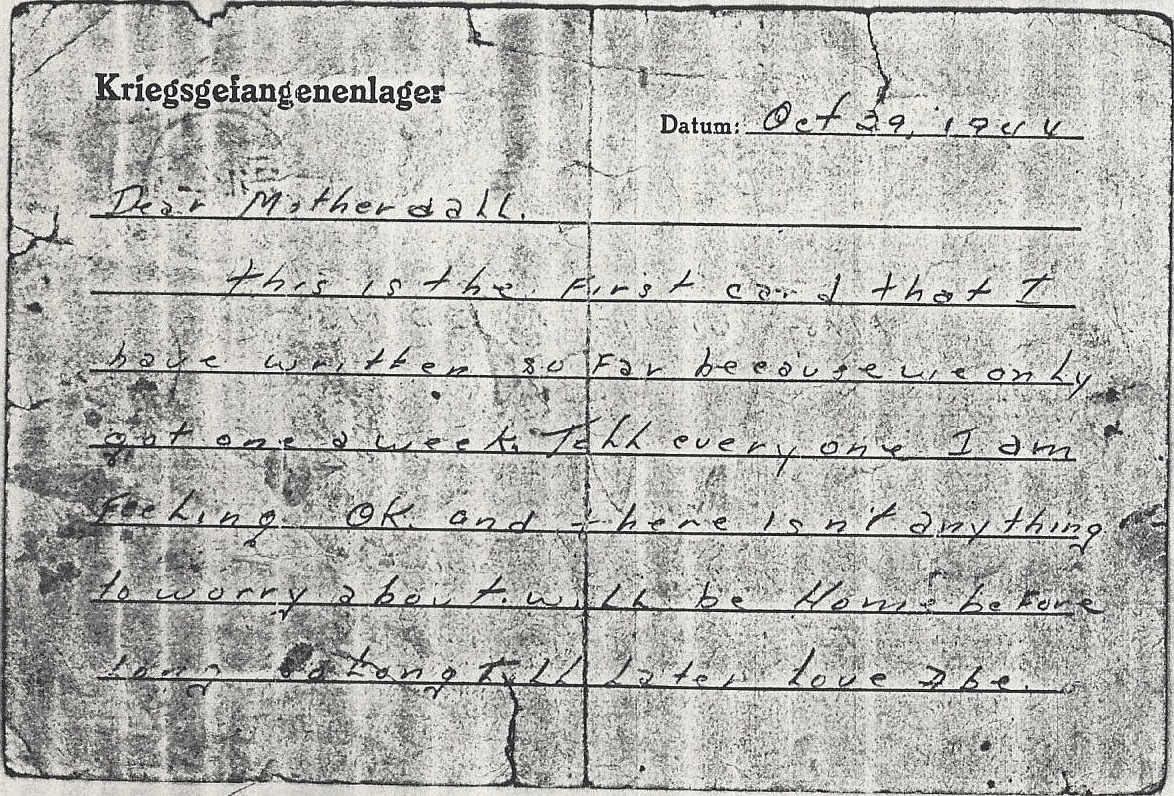 Kriegsgefangenenlager
Datum: Oct 29, 1944
Dear Mother & all.
this is the first card that I
have written so far because we only
got one a week. Tell every one I am
feeling OK. and there isn't anything
to worry about. will be Home before
long so long till later love Abe.